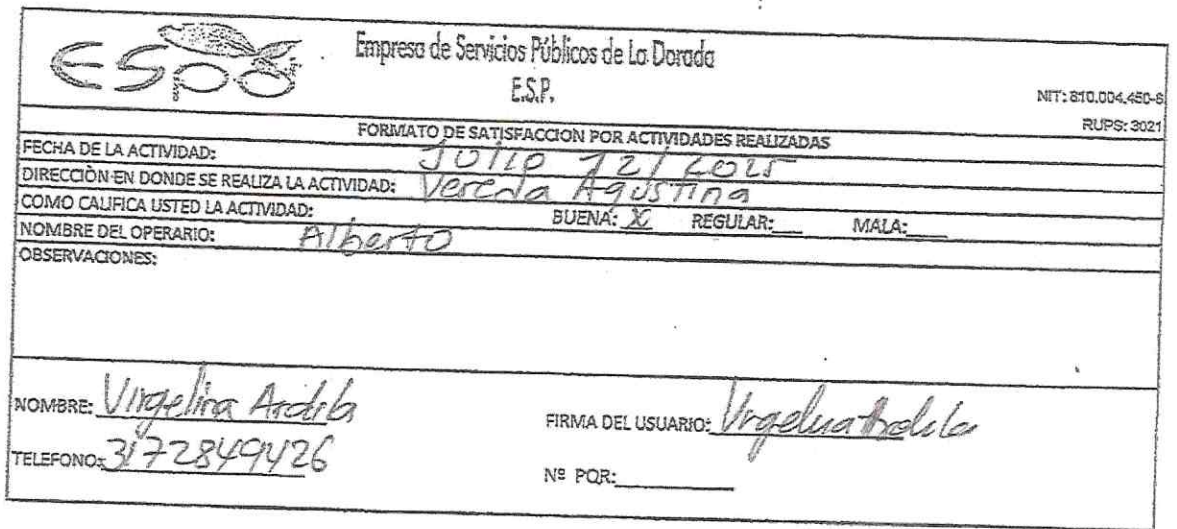 ESPO
Empresa de Servicios Públicos de La Dorada
E.S.P.
NIT: 810.004.450-6
RUPS: 3021
FORMATO DE SATISFACCION POR ACTIVIDADES REALIZADAS
FECHA DE LA ACTIVIDAD: Julio 12/2025
DIRECCIÒN EN DONDE SE REALIZA LA ACTIVIDAD: Vereda Agustina
COMO CALIFICA USTED LA ACTIVIDAD: BUENA: X REGULAR:___ MALA:____
NOMBRE DEL OPERARIO: Alberto
OBSERVACIONES:
NOMBRE: Virgelina Ardila FIRMA DEL USUARIO: Virgelina Ardila
TELEFONO: 3172849426 Nº PQR:________